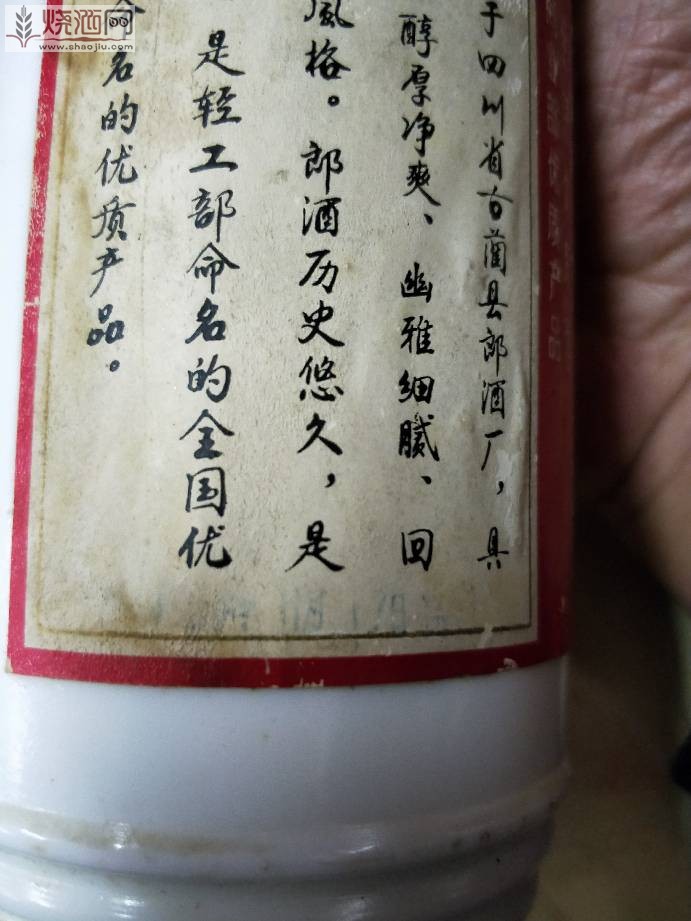 烧酒网
www.shaojiu.com
于四川省古蔺县郎酒厂，具
醇厚净爽、幽雅细腻、回
風格。郎酒历史悠久，是
是轻工部命名的全国优
名的优质产品。
产品